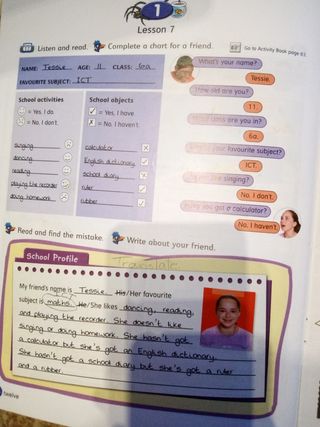 1
Lesson 7
Listen and read. Complete a chart for a friend. Go to Activity Book page 61
NAME: Tessie AGE: 11 CLASS: 6a
FAVOURITE SUBJECT: ICT
School activities
= Yes, I do.
= No, I don't.
singing
dancing
reading
playing the recorder
doing homework
School objects
✓ = Yes, I have
X = No, I haven't.
calculator X
English dictionary ✓
school diary X
ruler ✓
rubber ✓
What's your name?
Tessie.
How old are you?
11.
What class are you in?
6a.
What's your favourite subject?
ICT.
Do you like singing?
No, I don't.
Have you got a calculator?
No, I haven't.
Read and find the mistake. Write about your friend.
School Profile
Translate
My friend's name is Tessie. His/Her favourite
subject is maths. He/She likes dancing, reading,
and playing the recorder. She doesn't like
singing or doing homework. She hasn't got
a calculator but she's got an English dictionary.
She hasn't got a school diary but she's got a ruler
and a rubber.
twelve